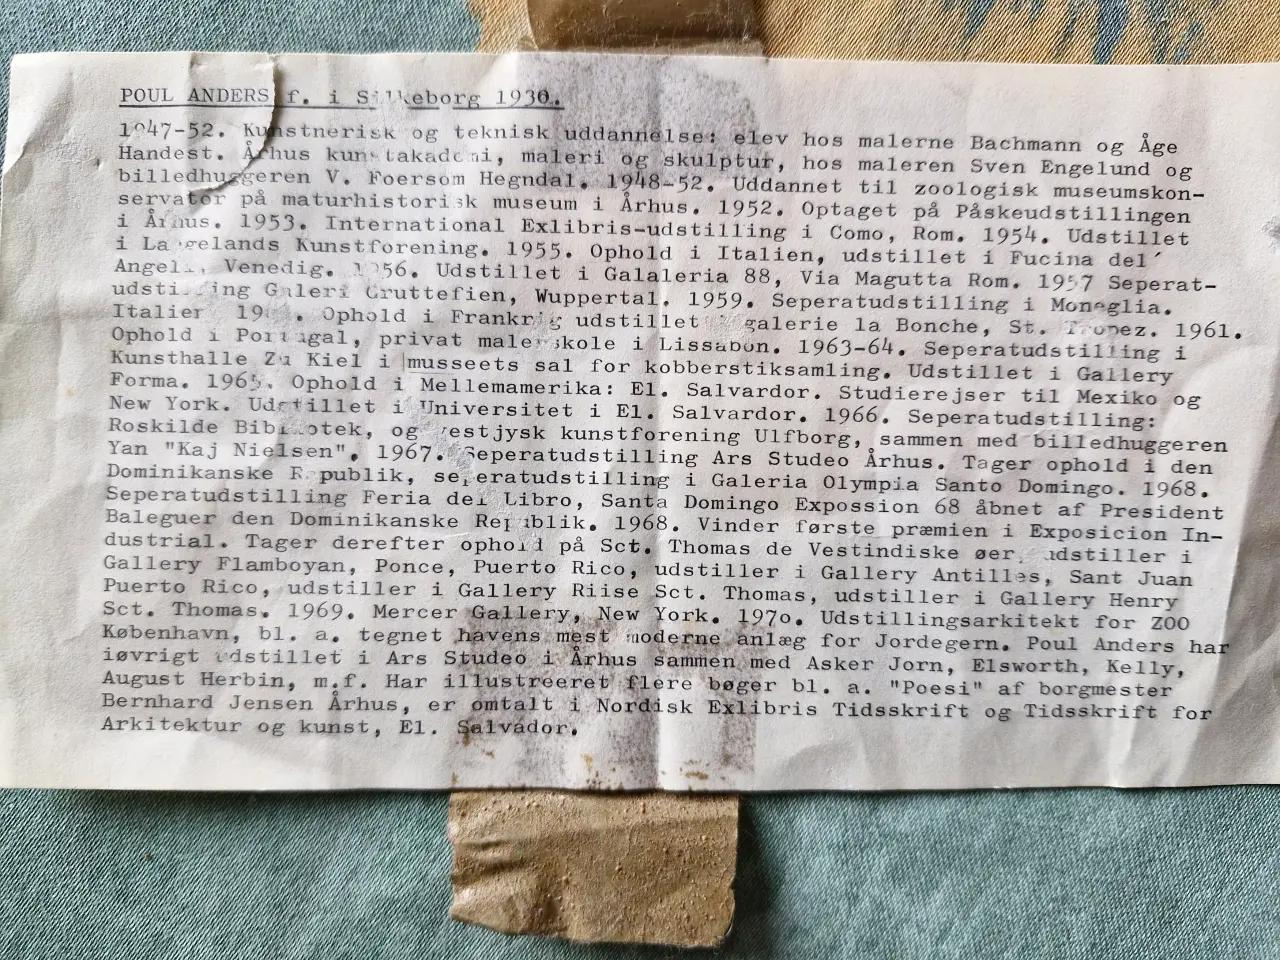 POUL ANDERS f. i Silkeborg 1930.
1947-52. Kunstnerisk og teknisk uddannelse: elev hos malerne Bachmann og Åge
Handest. Århus kunstakademi, maleri og skulptur, hos maleren Sven Engelund og
billedhuggeren V. Foersom Hegndal. 1948-52. Uddannet til zoologisk museumskon-
servator på maturhistorisk museum i Århus. 1952. Optaget på Påskeudstillingen
i Århus. 1953. International Exlibris-udstilling i Como, Rom. 1954. Udstillet
i Langelands Kunstforening. 1955. Ophold i Italien, udstillet i Fucina del´
Venedig. 1956. Udstillet i Galaleria 88, Via Magutta Rom. 1957 Seperat-
udstilling Galeri Gruttefien, Wuppertal. 1959. Seperatudstilling i Moneglia.
Italien Ophold i Frankrig udstillet galerie la Bonche, St. Tropez. 1961.
Ophold i Portugal, privat malerskole i Lissabon. 1963-64. Seperatudstilling i
Kunsthalle Zu Kiel i musseets sal for kobberstiksamling. Udstillet i Gallery
Forma. 1965. Ophold i Mellemamerika: El. Salvardor. Studierejser til Mexiko og
New York. Udstillet i Universitet i El. Salvardor. 1966. Seperatudstilling:
Roskilde Bibliotek, og vestjysk kunstforening Ulfborg, sammen med billedhuggeren
Yan "Kaj Nielsen". 1967. Seperatudstilling Ars Studeo Århus. Tager ophold i den
Dominikanske Republik, seperatudstilling i Galeria Olympia Santo Domingo. 1968.
Seperatudstilling Feria del Libro, Santa Domingo Expossion 68 åbnet af President
Baleguer den Dominikanske Republik. 1968. Vinder første præmien i Exposicion In-
dustrial. Tager derefter ophold på Sct. Thomas de Vestindiske øer, udstiller i
Gallery Flamboyan, Ponce, Puerto Rico, udstiller i Gallery Antilles, Sant Juan
Puerto Rico, udstiller i Gallery Riise Sct. Thomas, udstiller i Gallery Henry
Sct. Thomas. 1969. Mercer Gallery, New York. 197o. Udstillingsarkitekt for ZOO
København, bl. a. tegnet havens mest moderne anlæg for Jordegern. Poul Anders har
iøvrigt udstillet i Ars Studeo i Århus sammen med Asker Jorn, Elsworth, Kelly,
August Herbin, m.f. Har illustreeret flere bøger bl. a. "Poesi" af borgmester
Bernhard Jensen Århus, er omtalt i Nordisk Exlibris Tidsskrift og Tidsskrift for
Arkitektur og kunst, El. Salvador.